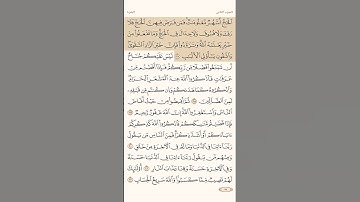 الجزء الثاني
البقرة
ٱلۡحَجُّ أَشۡهُرٞ مَّعۡلُومَٰتٞۚ فَمَن فَرَضَ فِيهِنَّ ٱلۡحَجَّ فَلَا
رَفَثَ وَلَا فُسُوقَ وَلَا جِدَالَ فِي ٱلۡحَجِّۗ وَمَا تَفۡعَلُواْ مِنۡ
خَيۡرٖ يَعۡلَمۡهُ ٱللَّهُۗ وَتَزَوَّدُواْ فَإِنَّ خَيۡرَ ٱلزَّادِ ٱلتَّقۡوَىٰۖ
وَٱتَّقُونِ يَٰٓأُوْلِي ٱلۡأَلۡبَٰبِ ١٩٧ لَيۡسَ عَلَيۡكُمۡ جُنَاحٌ
أَن تَبۡتَغُواْ فَضۡلٗا مِّن رَّبِّكُمۡۚ فَإِذَآ أَفَضۡتُم مِّنۡ
عَرَفَٰتٖ فَٱذۡكُرُواْ ٱللَّهَ عِندَ ٱلۡمَشۡعَرِ ٱلۡحَرَامِۖ
وَٱذۡكُرُوهُ كَمَا هَدَىٰكُمۡ وَإِن كُنتُم مِّن قَبۡلِهِۦ
لَمِنَ ٱلضَّآلِّينَ ١٩٨ ثُمَّ أَفِيضُواْ مِنۡ حَيۡثُ أَفَاضَ
ٱلنَّاسُ وَٱسۡتَغۡفِرُواْ ٱللَّهَۚ إِنَّ ٱللَّهَ غَفُورٞ رَّحِيمٞ ١٩٩
فَإِذَا قَضَيۡتُم مَّنَٰسِكَكُمۡ فَٱذۡكُرُواْ ٱللَّهَ كَذِكۡرِكُمۡ
ءَابَآءَكُمۡ أَوۡ أَشَدَّ ذِكۡرٗاۗ فَمِنَ ٱلنَّاسِ مَن يَقُولُ
رَبَّنَآ ءَاتِنَا فِي ٱلدُّنۡيَا وَمَا لَهُۥ فِي ٱلۡأٓخِرَةِ مِنۡ خَلَٰقٖ ٢٠٠
وَمِنۡهُم مَّن يَقُولُ رَبَّنَآ ءَاتِنَا فِي ٱلدُّنۡيَا حَسَنَةٗ
وَفِي ٱلۡأٓخِرَةِ حَسَنَةٗ وَقِنَا عَذَابَ ٱلنَّارِ ٢٠١ أُوْلَٰٓئِكَ
لَهُمۡ نَصِيبٞ مِّمَّا كَسَبُواْۚ وَٱللَّهُ سَرِيعُ ٱلۡحِسَابِ ٢٠٢